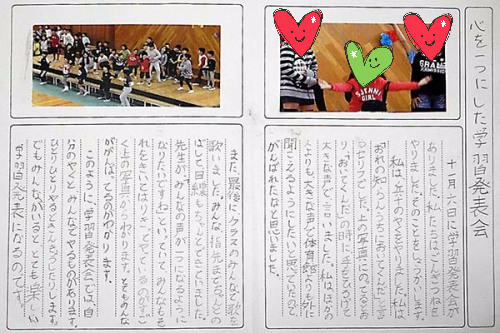 心を一つにした学習発表会
十一月六日に学習発表会が
ありました。私たちはごんぎつねを
やりました。そのことをしょうかいします。
私は、兵十のやくをやりました。私は
「おれの知らんうちにおいてくんだ」と言
うセリフでした。上の写真にのってるとお
り、「おいてくんだ」の時に、手をひろげて
大きな声で言いました。私は、ほかの
人よりも、大きな声で体育館よりも外に
聞こえるようにしたいと思っていたので、
がんばれたなと思いました。
また、最後にクラスのみんなで歌を
歌いました。みんな、指先までぴんとの
ばして、目線もちゃんとできていました。
先生が、「みんなの声が一つになるように
なりたいですね」といっていて、みんなもそ
れをきいてはりきってやっているのがすご
く上の写真からわかります。とてもみんな
ががんばってるのがわかります。
このように、学習発表会では、自
分のやくとみんなとやるものがあります。
ひとりひとりやるときんちょうしたりします。
でもみんながいると、とても楽しい
学習発表会になるのです。
GRAMM
GIRL